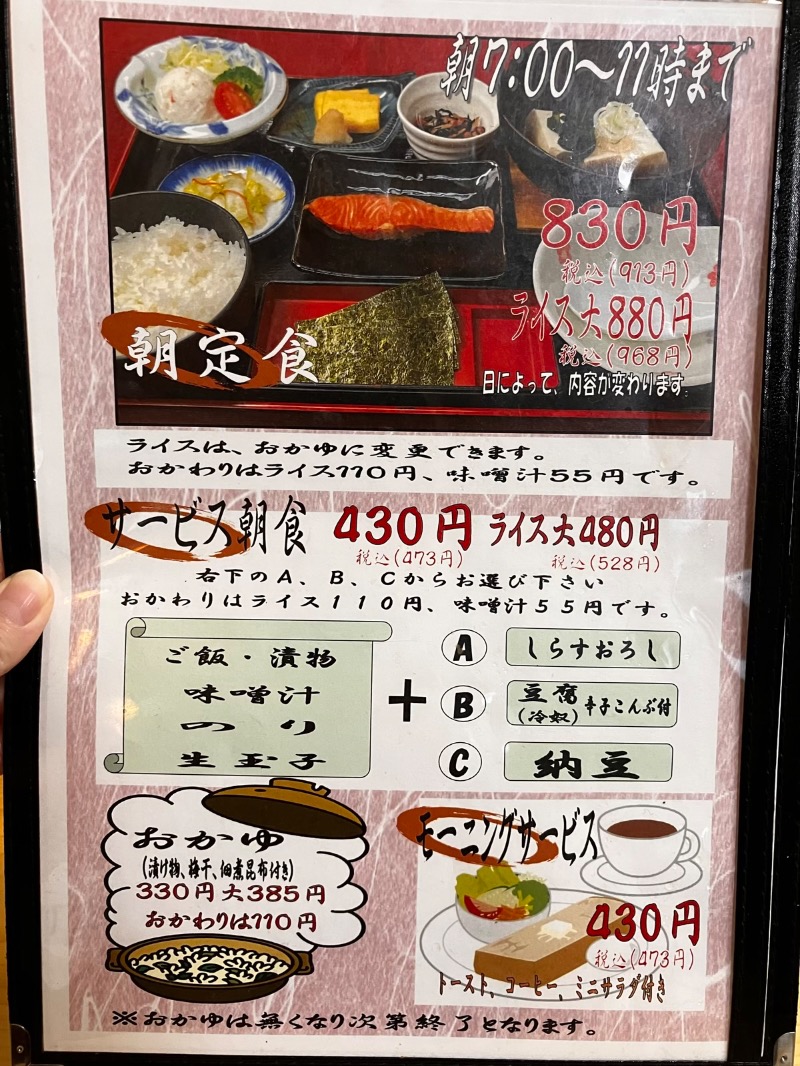 朝7:00〜11時まで
830円
税込(913円)
ライス大880円
税込(968円)
朝定食
日によって、内容が変わります
ライスは、おかゆに変更できます。
おかわりはライス110円、味噌汁55円です。
サービス朝食 430円 ライス大480円
税込(473円) 税込(528円)
右下のA、B、Cからお選び下さい
おかわりはライス110円、味噌汁55円です。
ご飯・漬物
味噌汁
のり
生玉子
+
A しらすおろし
B 豆腐(冷奴) 辛子こんぶ付
C 納豆
おかゆ
(漬け物、梅干、佃煮昆布付き)
330円 大385円
おかわりは110円
モーニングサービス
430円
税込(473円)
トースト、コーヒー、ミニサラダ付き
※おかゆは無くなり次第終了となります。